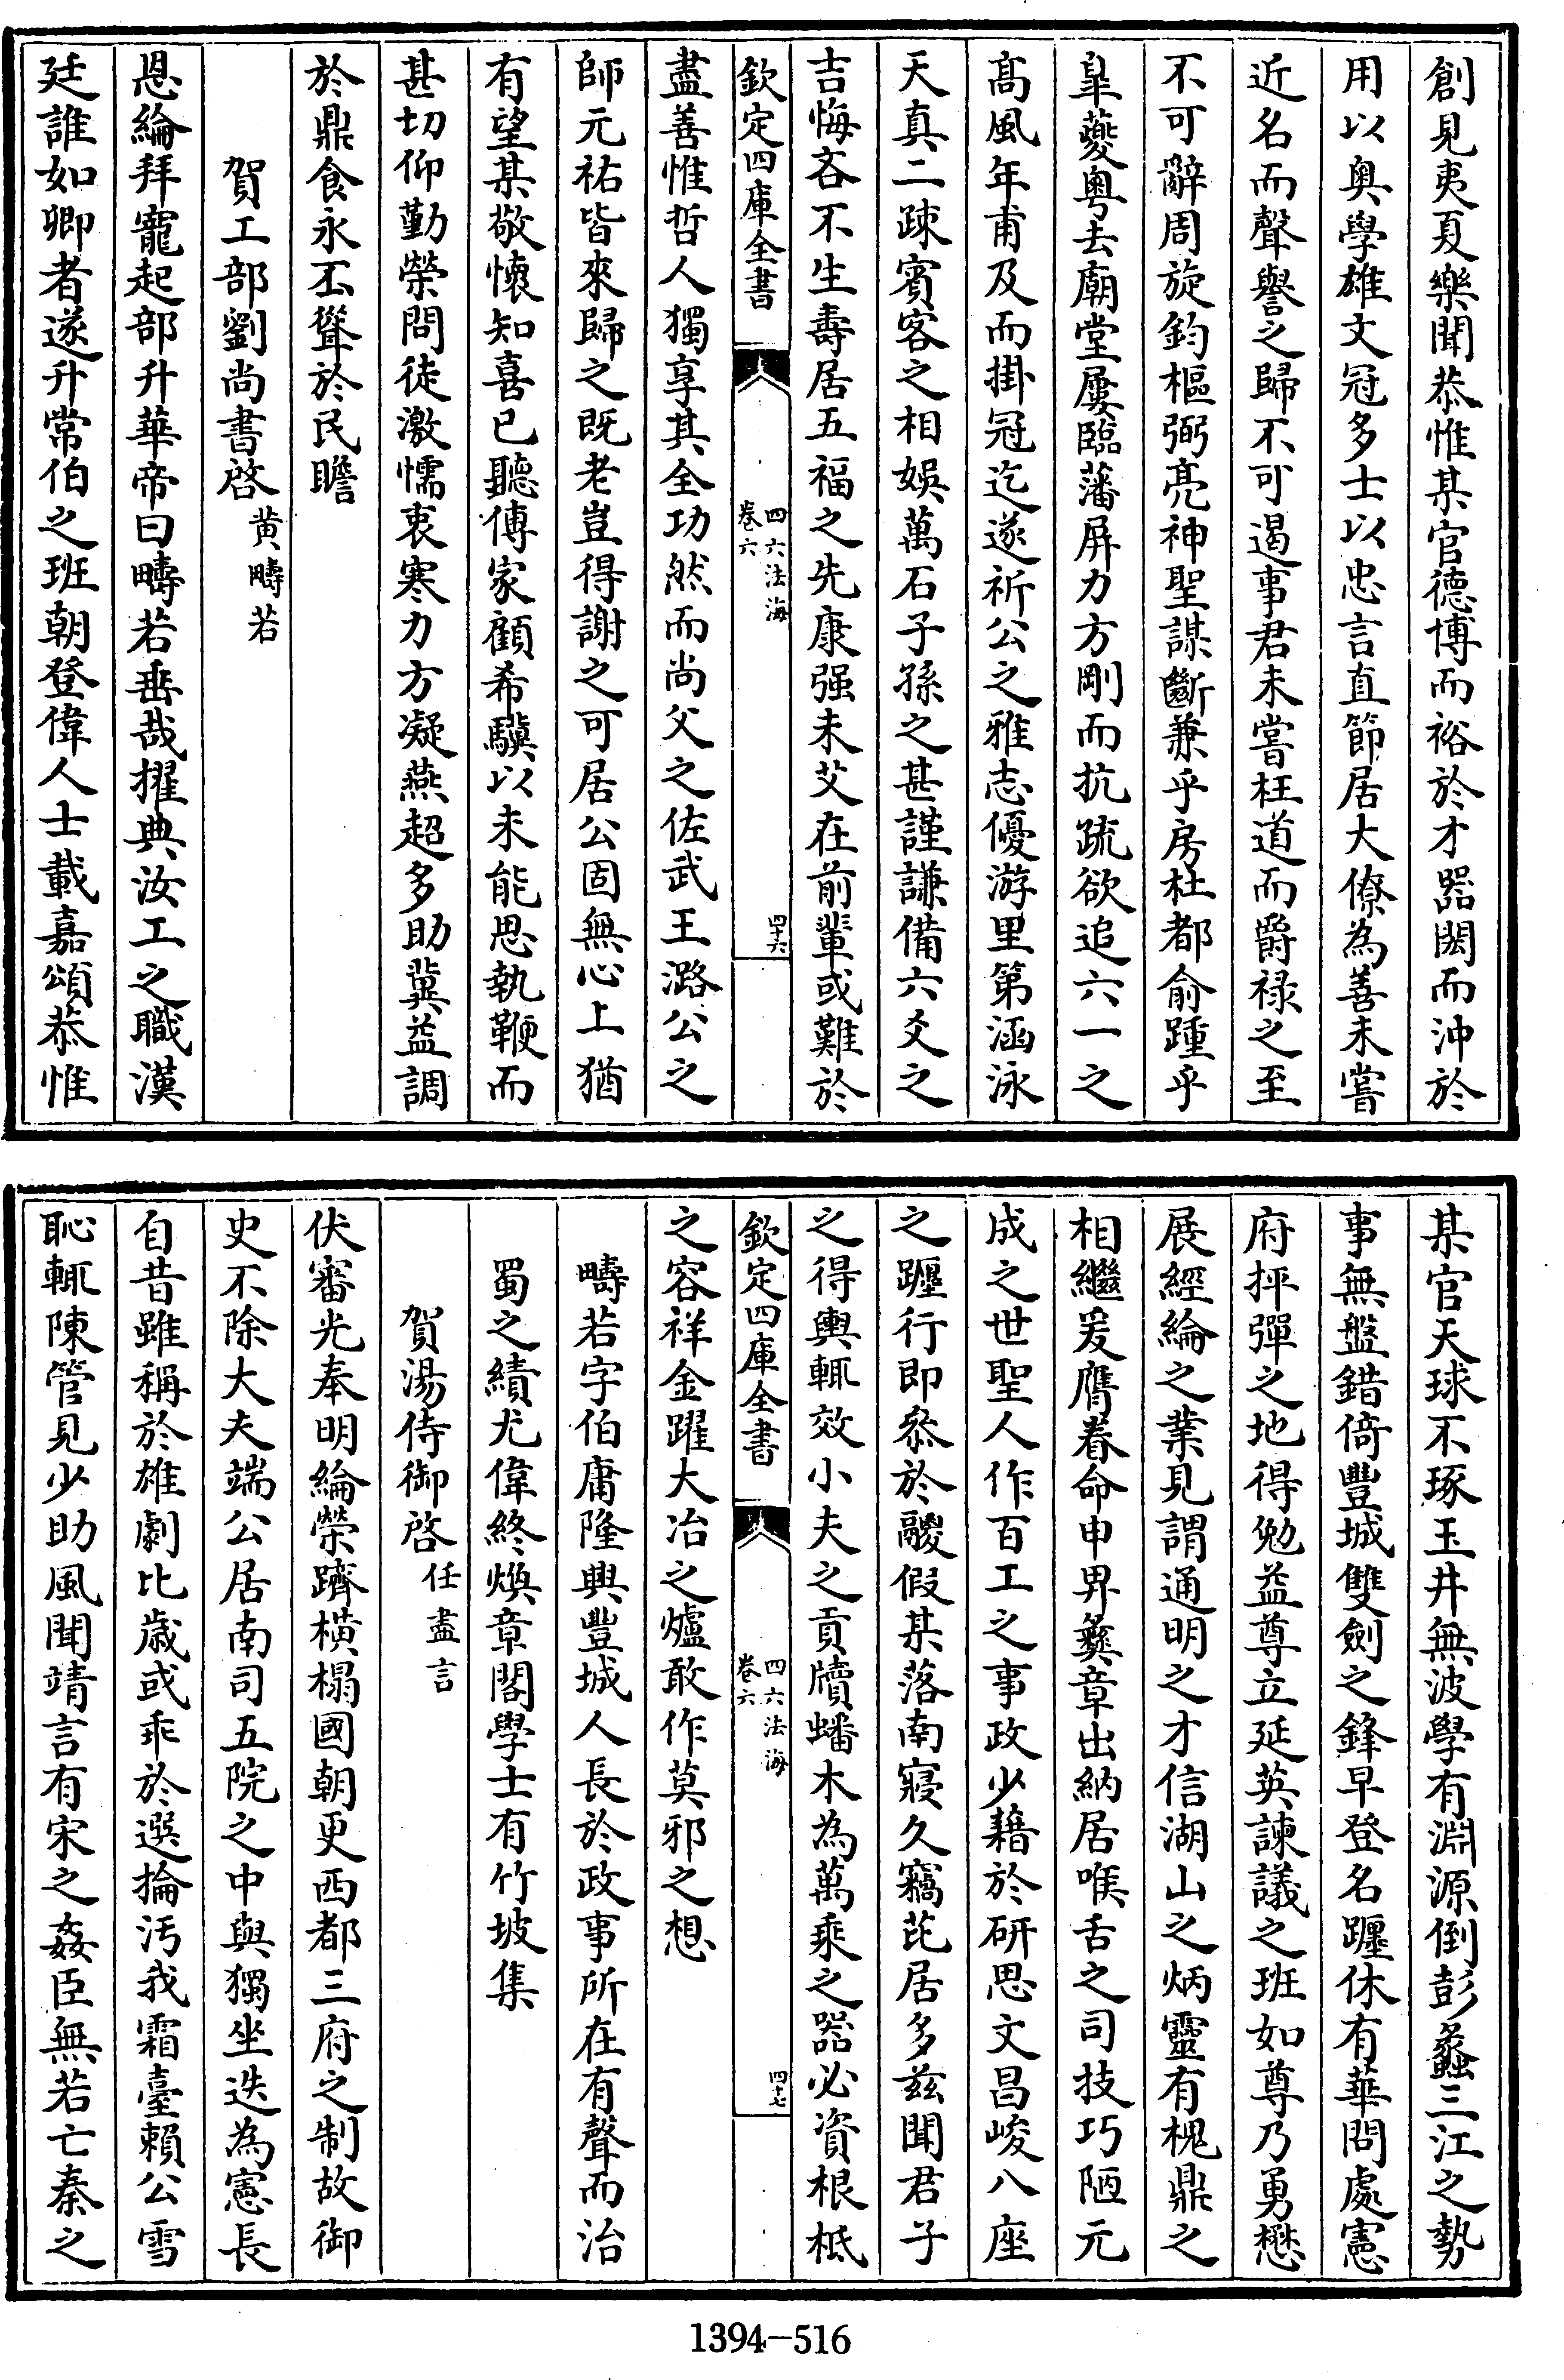 創見夷夏樂聞恭惟某官德博而裕於才器閎而沖於
用以奧學雄文冠多士以忠言直節居大僚為善未嘗
近名而聲譽之歸不可遏事君未嘗枉道而爵祿之至
不可辭周旋鈞樞弼亮神聖謀斷兼乎房杜都俞踵乎
臯夔粵去廟堂屢臨藩屏力方剛而抗疏欲追六一之
髙風年甫及而掛冠迄遂祈公之雅志優游里第涵泳
天真二疎賓客之相娛萬石子孫之甚謹謙備六爻之
吉悔吝不生壽居五福之先康强未艾在前輩或難於
欽定四庫全書
四六法海
卷六
四十六
盡善惟哲人獨享其全功然而尚父之佐武王潞公之
師元祐皆來歸之既老豈得謝之可居公固無心上猶
有望某敬懷知喜已聽傳家顧希驥以未能思執鞭而
甚切仰勤榮問徒激懦衷寒力方凝燕超多助冀益調
於鼎食永丕聳於民瞻
賀工部劉尚書啓 黄疇若
恩綸拜寵起部升華帝曰疇若垂哉擢典汝工之職漢
廷誰如卿者遂升常伯之班朝登偉人士載嘉頌恭惟
某官天球不琢玉井無波學有淵源倒彭蠡三江之勢
事無盤錯倚豐城雙劍之鋒早登名躔休有華問處憲
府抨彈之地得勉益尊立延英諫議之班如尊乃勇懋
展經綸之業見謂通明之才信湖山之炳靈有槐鼎之
相繼爰膺眷命申畀彝章出納居喉舌之司技巧陋元
成之世聖人作百工之事政少藉於研思文昌峻八座
之躔行即叅於鬷假某落南寖久竊芘居多兹聞君子
之得輿輒效小夫之貢牘蟠木為萬乘之器必資根柢
欽定四庫全書
四六法海
卷六
四十七
之容祥金躍大冶之爐敢作莫邪之想
疇若字伯庸隆興豐城人長於政事所在有聲而治
蜀之績尤偉終煥章閣學士有竹坡集
賀湯侍御啓 任盡言
伏審光奉明綸榮躋橫榻國朝更西都三府之制故御
史不除大夫端公居南司五院之中與獨坐迭為憲長
自昔雖稱於雄劇比歲或乖於選掄污我霜臺賴公雪
恥輒陳管見少助風聞靖言有宋之姦臣無若亡秦之
1394—516